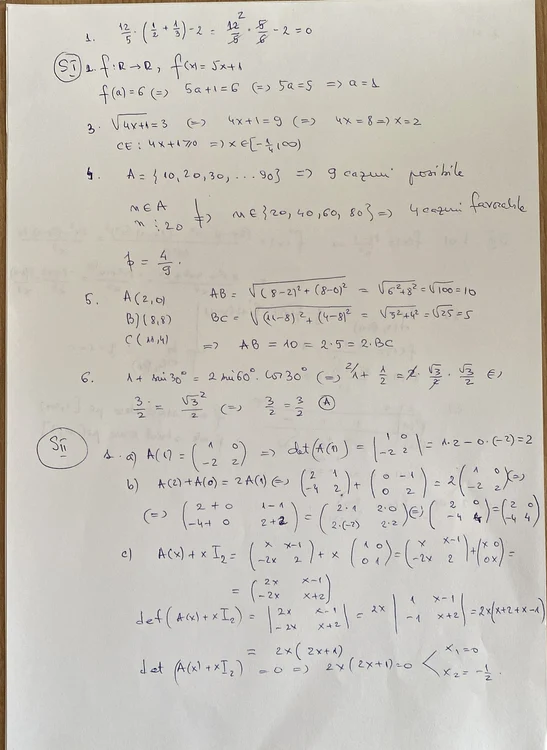 1. 12/5 · (1/2 + 1/3) - 2 = 12/5 · 5/6 - 2 = 0
SI 2. f: R → R, f(x) = 5x+1
f(a) = 6 (=) 5a+1 = 6 (=) 5a = 5 => a = 1
3. √(4x+1) = 3 (=) 4x+1 = 9 (=) 4x = 8 => x = 2
CE: 4x+1 ≥ 0 => x ∈ [-1/4, ∞)
4. A = {10, 20, 30, ... 90} => 9 cazuri posibile
n ∈ A
n ⋮ 20 } => n ∈ {20, 40, 60, 80} => 4 cazuri favorabile
p = 4/9.
5. A(2,0) AB = √((8-2)² + (8-0)²) = √(6²+8²) = √100 = 10
B(8,8) BC = √((11-8)² + (4-8)²) = √(3²+4²) = √25 = 5
C(11,4) => AB = 10 = 2·5 = 2·BC
6. 1 + sin30° = 2 sin60° · cos30° (=) 2/1 + 1/2 = 2 · √3/2 · √3/2 (=)
3/2 = √3²/2 (=) 3/2 = 3/2 (A)
SII 1. a) A(1) = (1 0; -2 2) => det(A(1)) = |1 0; -2 2| = 1·2 - 0·(-2) = 2
b) A(2) + A(0) = 2A(1) (=) (2 1; -4 2) + (0 -1; 0 2) = 2 (1 0; -2 2) (=)
(=) (2+0 1-1; -4+0 2+2) = (2·1 2·0; 2·(-2) 2·2) (=) (2 0; -4 4) = (2 0; -4 4)
c) A(x) + x I₂ = (x x-1; -2x 2) + x (1 0; 0 1) = (x x-1; -2x 2) + (x 0; 0 x) =
= (2x x-1; -2x x+2)
det(A(x) + x I₂) = |2x x-1; -2x x+2| = 2x |1 x-1; -1 x+2| = 2x(x+2+x-1)
= 2x(2x+1)
det (A(x) + x I₂) = 0 => 2x(2x+1) = 0 < x₁ = 0
x₂ = -1/2.